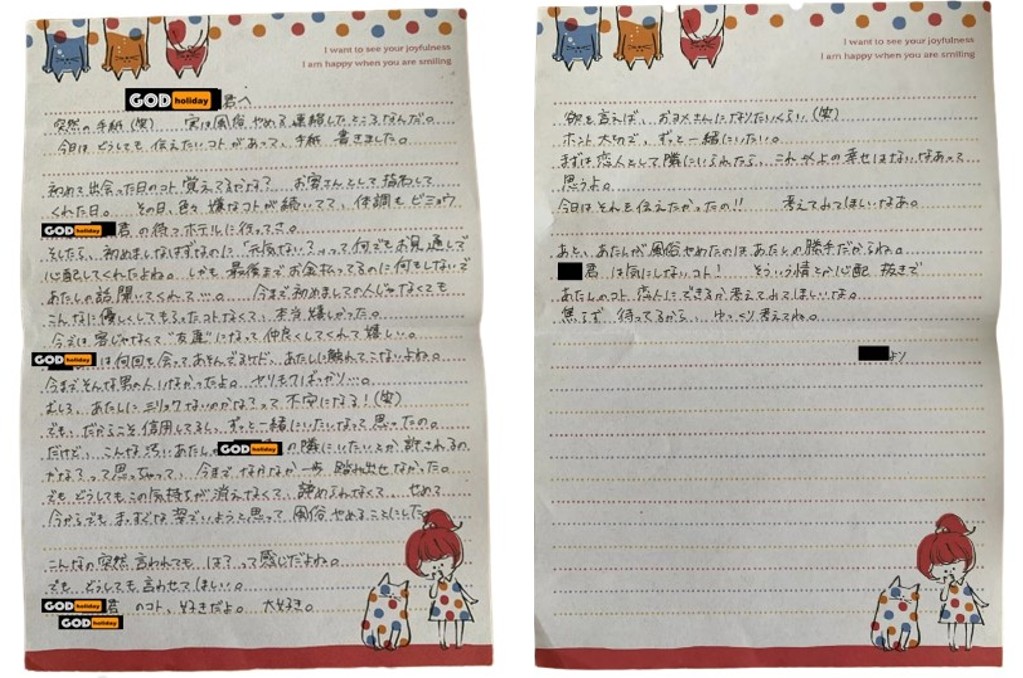 I want to see your joyfulness
I am happy when you are smiling
GOD holiday 君へ
突然の手紙(笑) 実は風俗やめる連絡したところなんだ。
今日はどうしても伝えたいコトがあって、手紙 書きました。
初めて出会った日のコト覚えてるかな? お客さんとして指名して
くれた日。 その日、色々嫌なコトが続いてて、体調もビミョウ
GOD holiday 君の待つホテルに行ってさ。
そしたら、初めましてなはずなのに「元気ない?」って何でもお見通しで
心配してくれたよね。しかも最後までお金払ってるのに何もしないで
あたしの話聞いてくれて…。 今まで初めましての人じゃなくても
こんなに優しくしてもらったコトなくて、本当嬉しかった。
今では客じゃなくて"友達"になって仲良くしてくれて嬉しい。
GOD holiday は何回も会ってあそんでるけど、あたしに触れてこないよね。
今までそんな男の人いなかったよ。ヤリモクばっかり…。
むしろ、あたしにミリョクないのかな?って不安になる!(笑)
でも、だからこそ信用してるし、ずっと一緒にいたいなって思ったの。
だけど、こんな汚いあたし GOD holiday の隣にいたいとか許されるの
かな?って思っちゃって、今までなかなか一歩踏み出せなかった。
でもどうしてもこの気持ちが消えなくて、諦められなくて せめて
今からでもまっすぐな姿でいようと思って風俗やめることにした。
こんなの突然言われても は?って感じだよね。
でも どうしても言わせてほしい。
GOD holiday 君 のコト、好きだよ。 大好き。
GOD holiday
I want to see your joyfulness
I am happy when you are smiling
欲を言えば、およメさんになりたいくらい(笑)
ホント大切で、ずっと一緒にいたい。
まずは恋人として隣にいられたら、これ以上の幸せはないなあって
思うよ。
今日はそれも伝えたかったの!! 考えてみてほしいなあ。
あと、あたしが風俗やめたのはあたしの勝手だからね。
君 は気にしないコト! そういう情とか心配 抜きで
あたしのコト恋人にできるか考えてみてほしいな。
焦らず 待ってるから、ゆっくり考えてね。
より